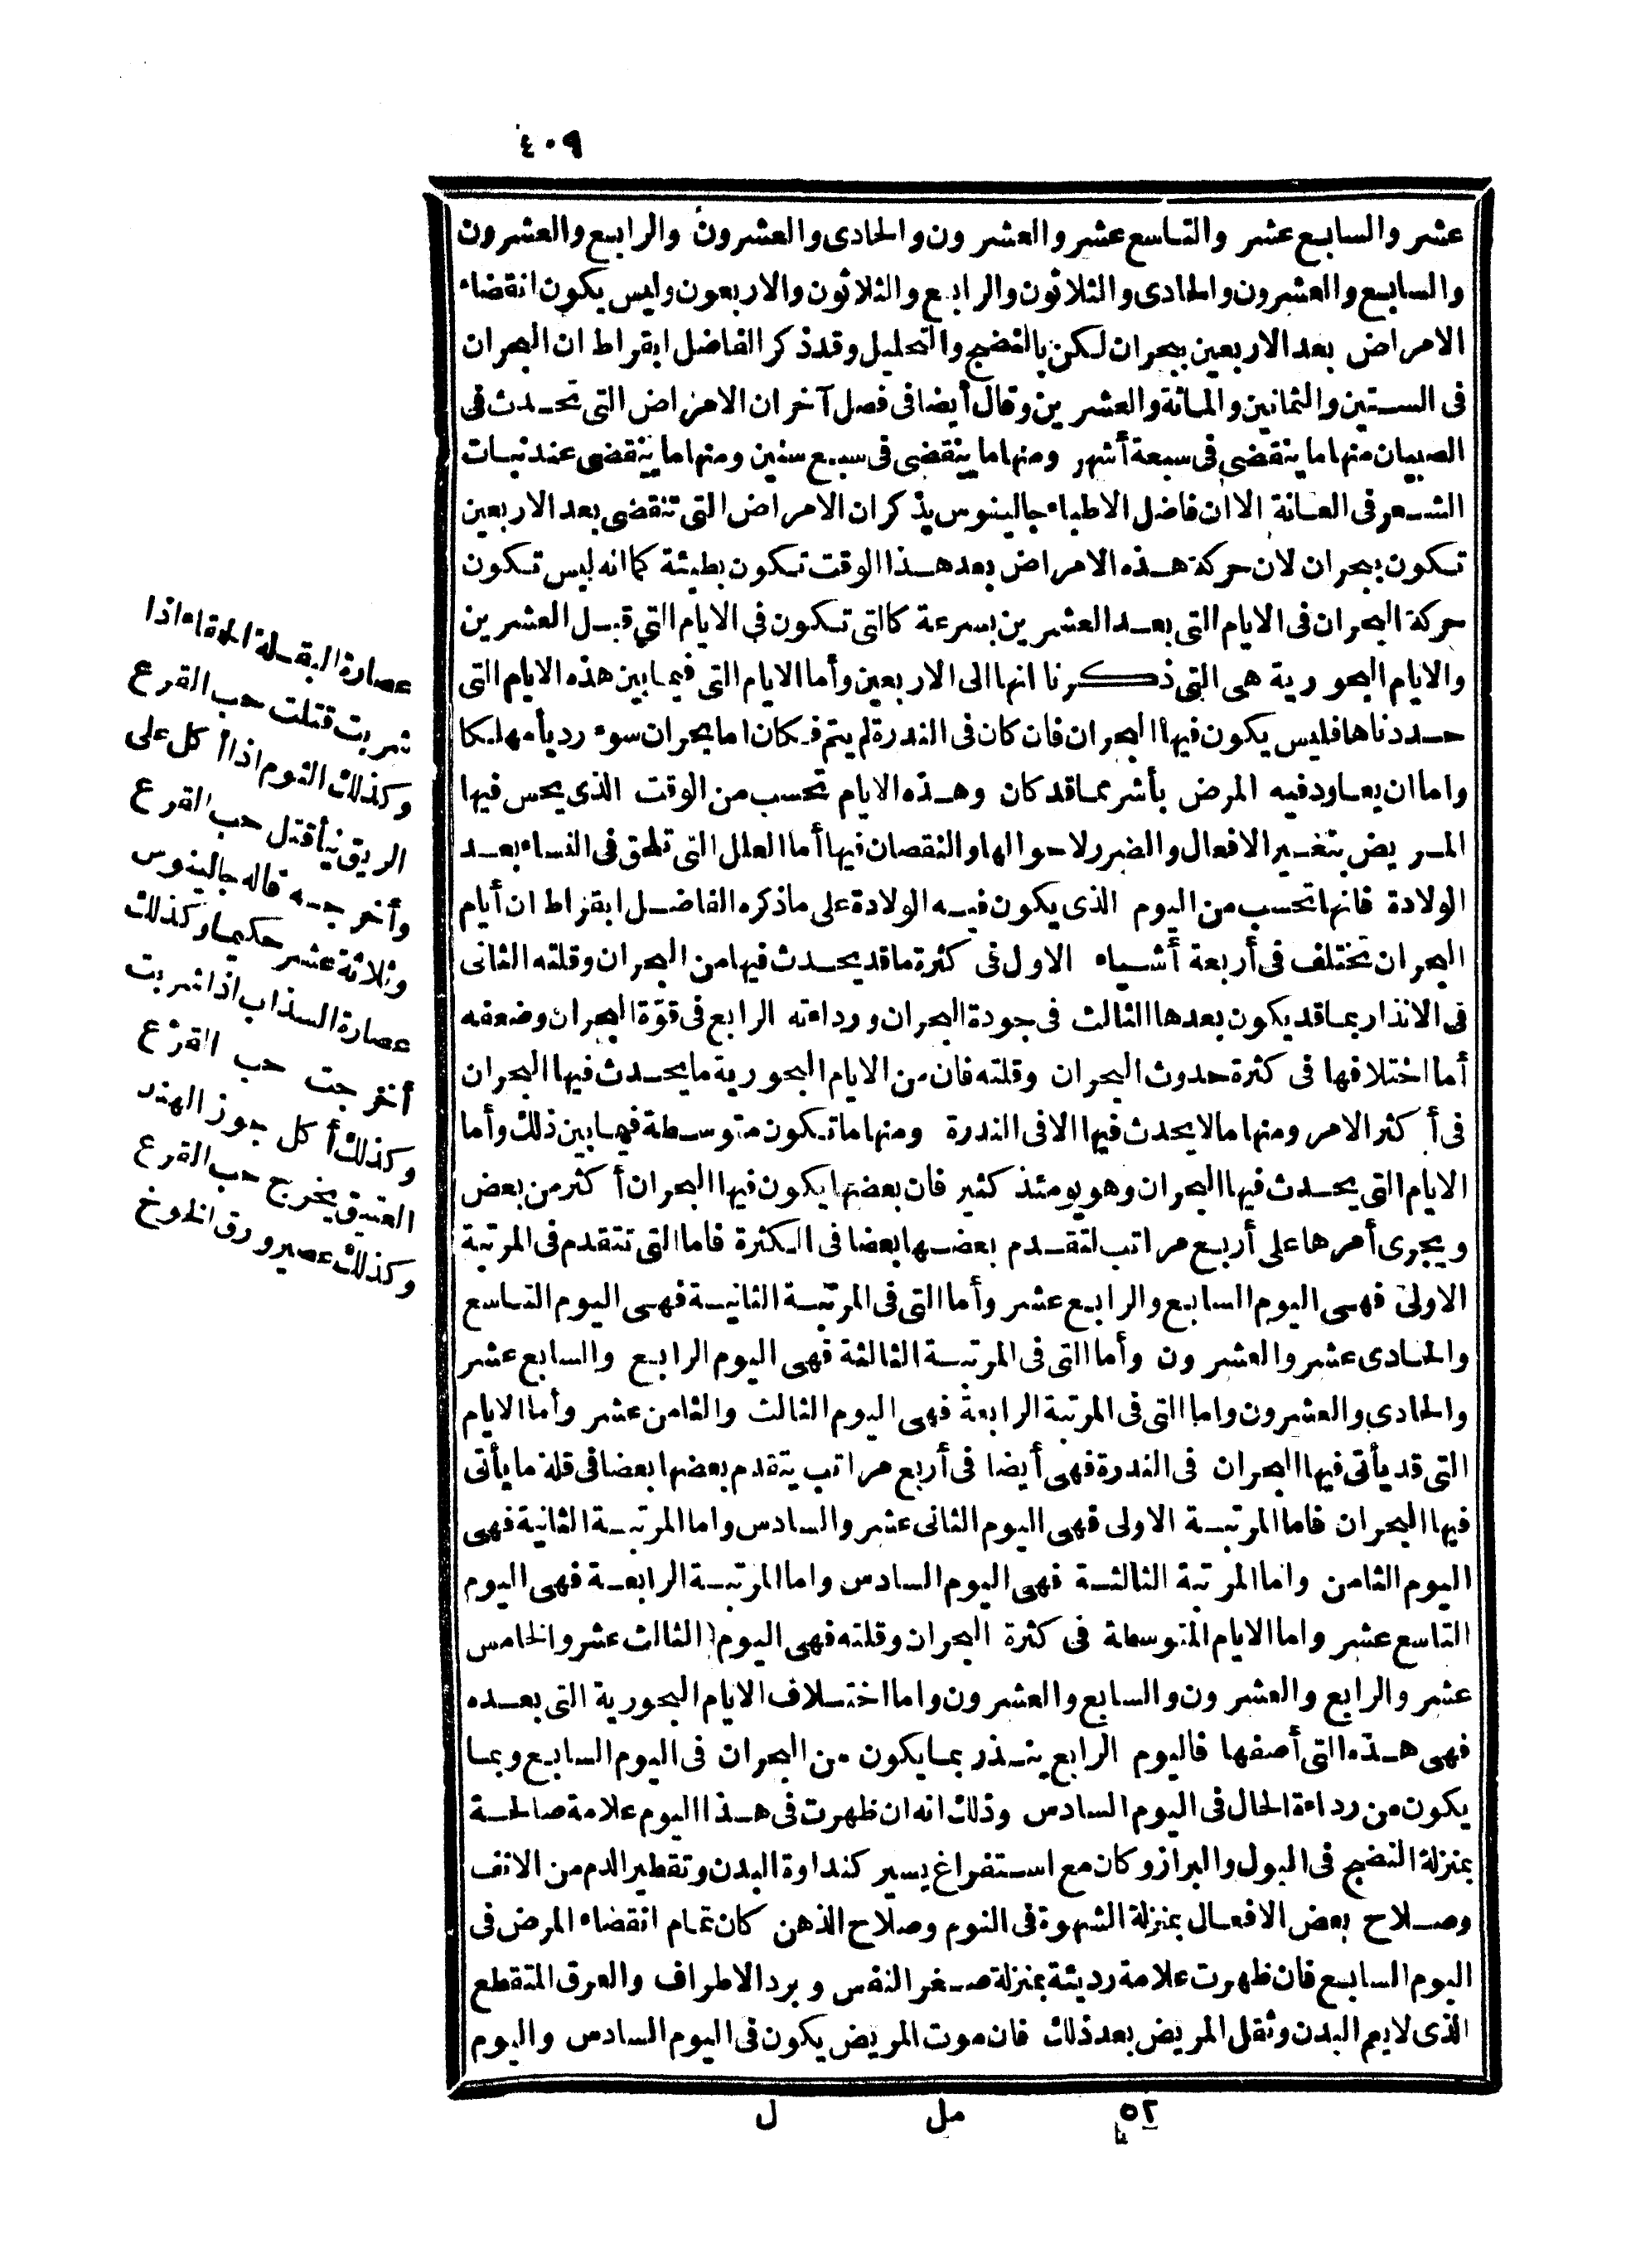 ٤٠٩
عشر والسابع عشر والتاسع عشر والعشرون والحادى والعشرون والرابع والعشرون
والسابع والعشرون والحادى والثلاثون والرابع والثلاثون والاربعون وليس يكون انقضاء
الامراض بعد الاربعين ببحران لكن بالنضج والتحليل وقد ذكر الفاضل ابقراط ان البحران
فى الستين والثمانين والمائة والعشرين وقال أيضا فى فصل آخر ان الامراض التى تحدث فى
الصبيان منها ما ينقضى فى سبعة أشهر ومنها ما ينقضى فى سبع سنين ومنها ما ينقضى عند نبات
الشعر فى العانة الا ان فاضل الاطباء جالينوس يذكر ان الامراض التى تنقضى بعد الاربعين
تكون ببحران لان حركة هذه الامراض بعد هذا الوقت تكون بطيئة كما انه ليس تكون
حركة البحران فى الايام التى بعد العشرين بسرعة كالتى تكون فى الايام التى قبل العشرين
والايام البحورية هى التى ذكرنا انها الى الاربعين وأما الايام التى فيما بين هذه الايام التى
حددناها فليس يكون فيها البحران فان كان فى الندرة لم يتم فكان اما بحران سوء رديأ مهلكا
واما ان يعاود فيه المرض بأشر مما قد كان وهذه الايام تحسب من الوقت الذى يحس فيها
المريض بتغير الافعال والضرر لاحوالها والنقصان فيها أما العلل التى تلحق فى النساء بعد
الولادة فانها تحسب من اليوم الذى يكون فيه الولادة على ما ذكره الفاضل ابقراط ان أيام
البحران تختلف فى أربعة أشياء الاول فى كثرة ما قد يحدث فيها من البحران وقلته الثانى
فى الانذار بما قد يكون بعدها الثالث فى جودة البحران ورداءته الرابع فى قوّة البحران وضعفه
أما اختلافها فى كثرة حدوث البحران وقلته فان من الايام البحورية ما يحدث فيها البحران
فى أكثر الامر ومنها ما لا يحدث فيها الا فى الندرة ومنها ما تكون متوسطة فيما بين ذلك وأما
الايام التى يحدث فيها البحران وهو يومئذ كثير فان بعضها يكون فيها البحران أكثر من بعض
ويجرى أمرها على أربع مراتب لتقدم بعضها بعضا فى الكثرة فاما التى تتقدم فى المرتبة
الاولى فهى اليوم السابع والرابع عشر وأما التى فى المرتبة الثانية فهى اليوم التاسع
والحادى عشر والعشرون وأما التى فى المرتبة الثالثة فهى اليوم الرابع والسابع عشر
والحادى والعشرون واما التى فى المرتبة الرابعة فهى اليوم الثالث والثامن عشر وأما الايام
التى قد يأتى فيها البحران فى الندرة فهى أيضا فى أربع مراتب يتقدم بعضها بعضا فى قلة ما يأتى
فيها البحران فاما المرتبة الاولى فهى اليوم الثانى عشر والسادس واما المرتبة الثانية فهى
اليوم الثامن واما المرتبة الثالثة فهى اليوم السادس واما المرتبة الرابعة فهى اليوم
التاسع عشر واما الايام المتوسطة فى كثرة البحران وقلته فهى اليوم الثالث عشر والخامس
عشر والرابع والعشرون والسابع والعشرون واما اختلاف الايام البحورية التى بعده
فهى هذه التى أصفها فاليوم الرابع ينذر بما يكون من البحران فى اليوم السابع وبما
يكون من رداءة الحال فى اليوم السادس وذلك انه ان ظهرت فى هذا اليوم علامة صالحة
بمنزلة النضج فى البول والبراز وكان مع استفراغ يسير كنداوة البدن وتقطير الدم من الانف
وصلاح بعض الافعال بمنزلة الشهوة فى النوم وصلاح الذهن كان تمام انقضاء المرض فى
اليوم السابع فان ظهرت علامة رديئة بمنزلة صغر النفس وبرد الاطراف والعرق المتقطع
الذى لا يعم البدن وثقل المريض بعد ذلك فان موت المريض يكون فى اليوم السادس واليوم
عصارة البقلة الحمقاء اذا
شربت قتلت حب القرع
وكذلك الثوم اذا أكل على
الريق نيأ قتل حب القرع
وأخرجه قاله جالينوس
وثلاثة عشر حكيما وكذلك
عصارة السذاب اذا شربت
أخرجت حب القرع
وكذلك أكل جوز الهند
العتيق يخرج حب القرع
وكذلك عصير ورق الخوخ
٥٢ مل ل